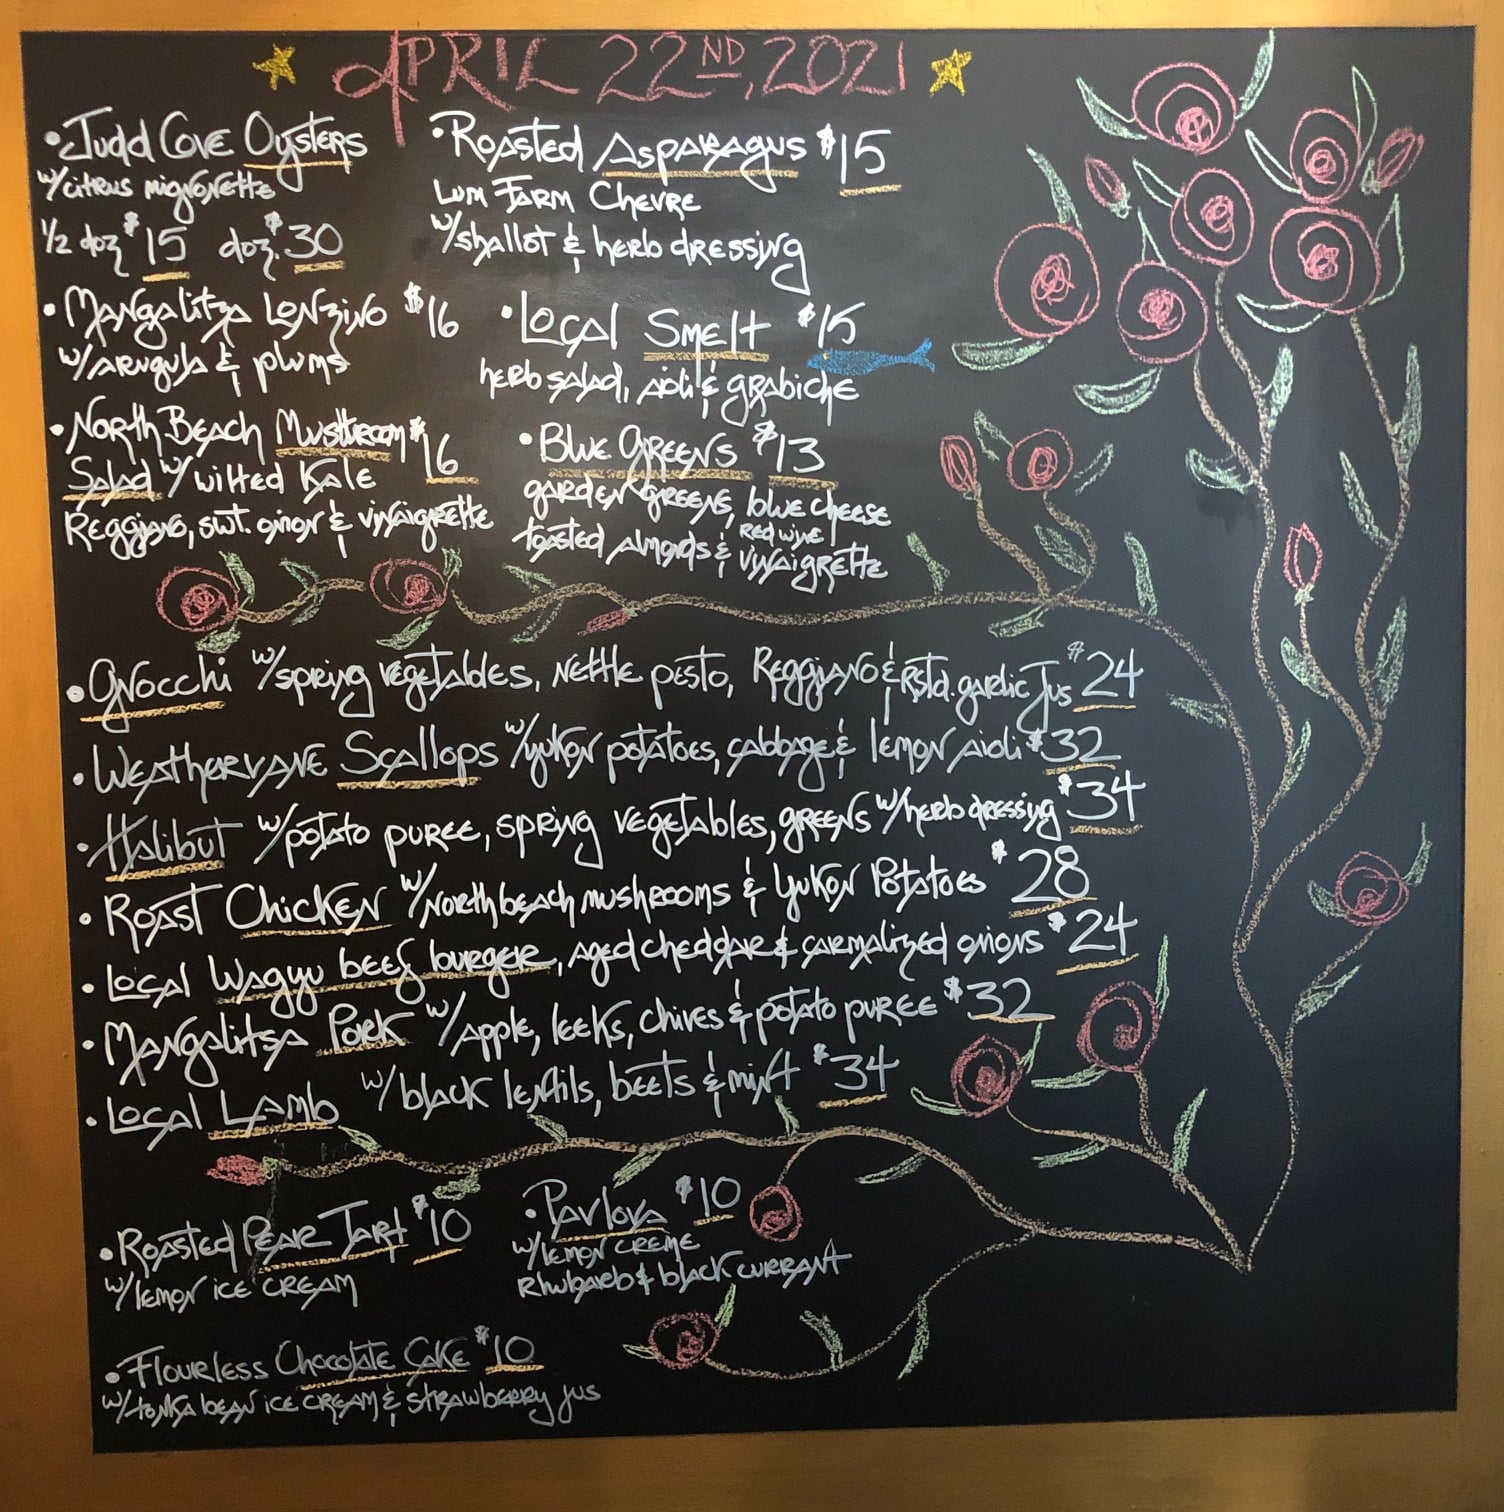 APRIL 22ND, 2021
• Judd Cove Oysters
w/citrus mignonette
1/2 doz $15 doz. $30
• Mangalitza Lonzino $16
w/arugula & plums
• North Beach Mushroom $16
Salad w/ wilted Kale
Reggiano, swt. onion & vinaigrette
• Roasted Asparagus $15
Lum Farm Chevre
w/shallot & herb dressing
• Local Smelt $15
herb salad, aioli & grabiche
• Blue Greens $13
garden greens, blue cheese
toasted almonds & red wine
vinaigrette
• Gnocchi w/spring vegetables, nettle pesto, Reggiano & rstd. garlic jus $24
• Weathervane Scallops w/yukon potatoes, cabbage & lemon aioli $32
• Halibut w/potato puree, spring vegetables, greens w/herb dressing $34
• Roast Chicken w/North beach mushrooms & Yukon Potatoes $28
• Local Wagyu beef burger, aged cheddar & carmalized onions $24
• Mangalitsa Pork w/apple, leeks, chives & potato puree $32
• Local Lamb w/black lentils, beets & mint $34
• Roasted Pear Tart $10
w/lemon ice cream
• Pavlova $10
w/lemon creme
Rhubarb & black currant
• Flourless Chocolate Cake $10
w/tonka bean ice cream & strawberry jus